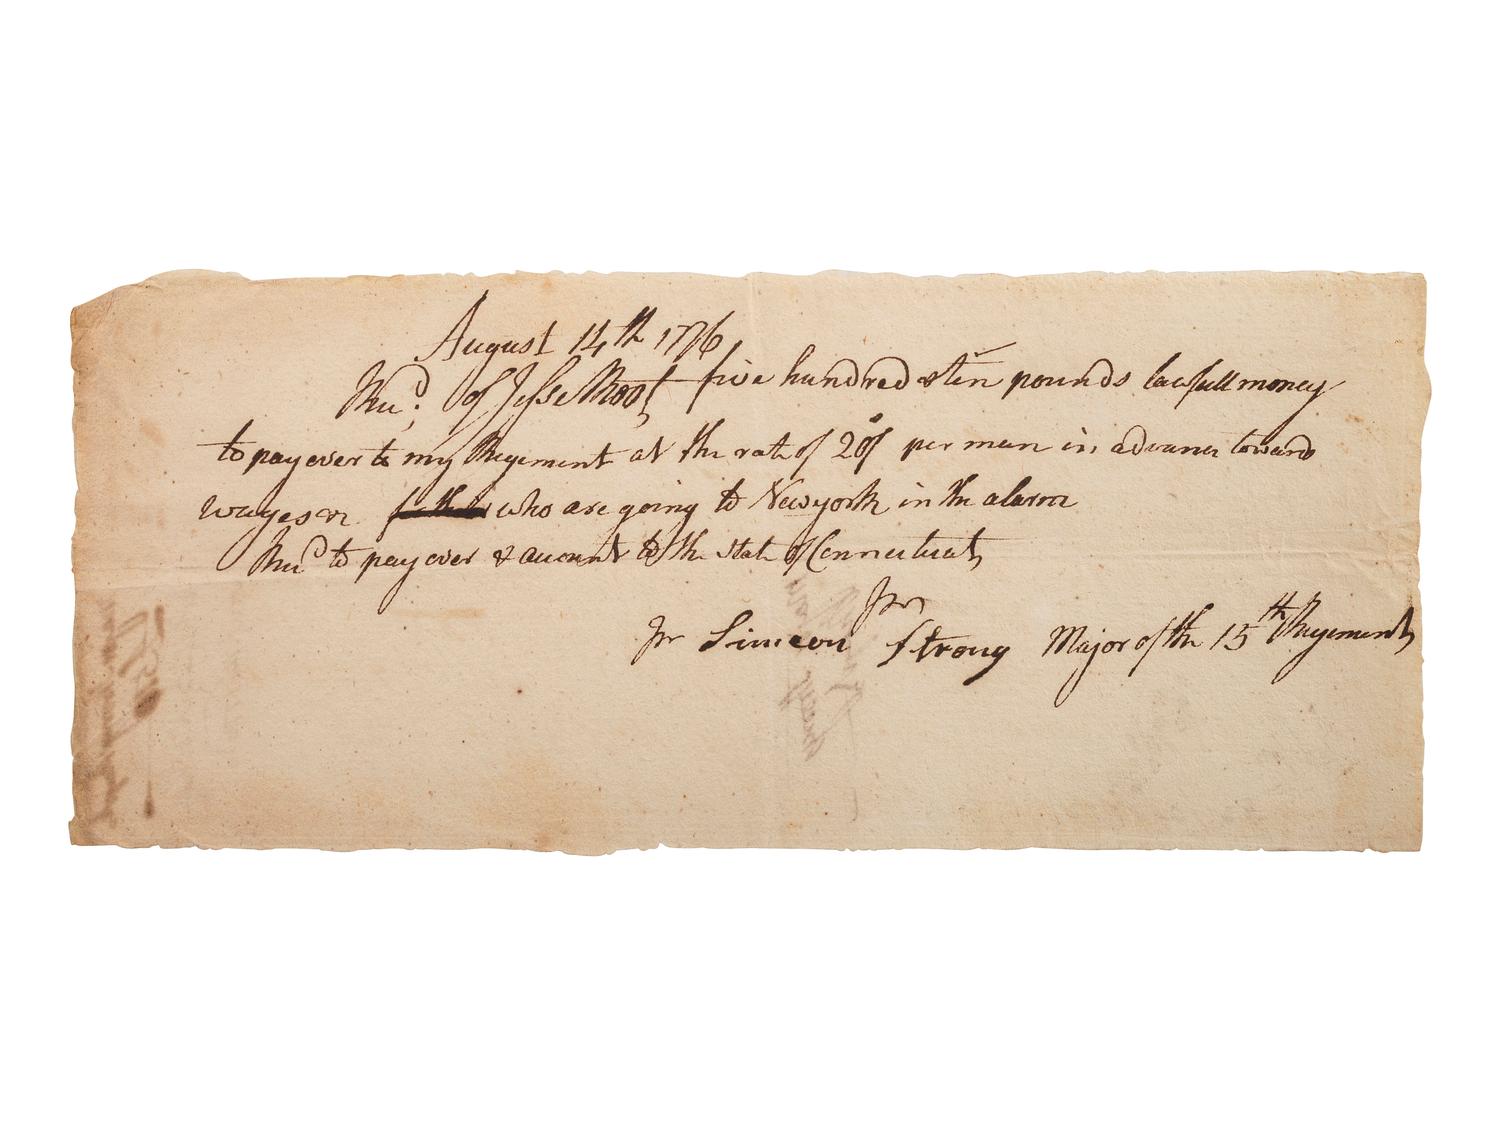 August 14th 1776
Recd. of Jesse Root five hundred & ten pounds lawfull money
to pay over to my Regiment at the rate of 20s/ per man in advance toward
wages &c who are going to Newyork in the alarm
Recd to pay over & account to the State of Connecticut,
pr Simeon Strong Jnr Major of the 15th Regiment,